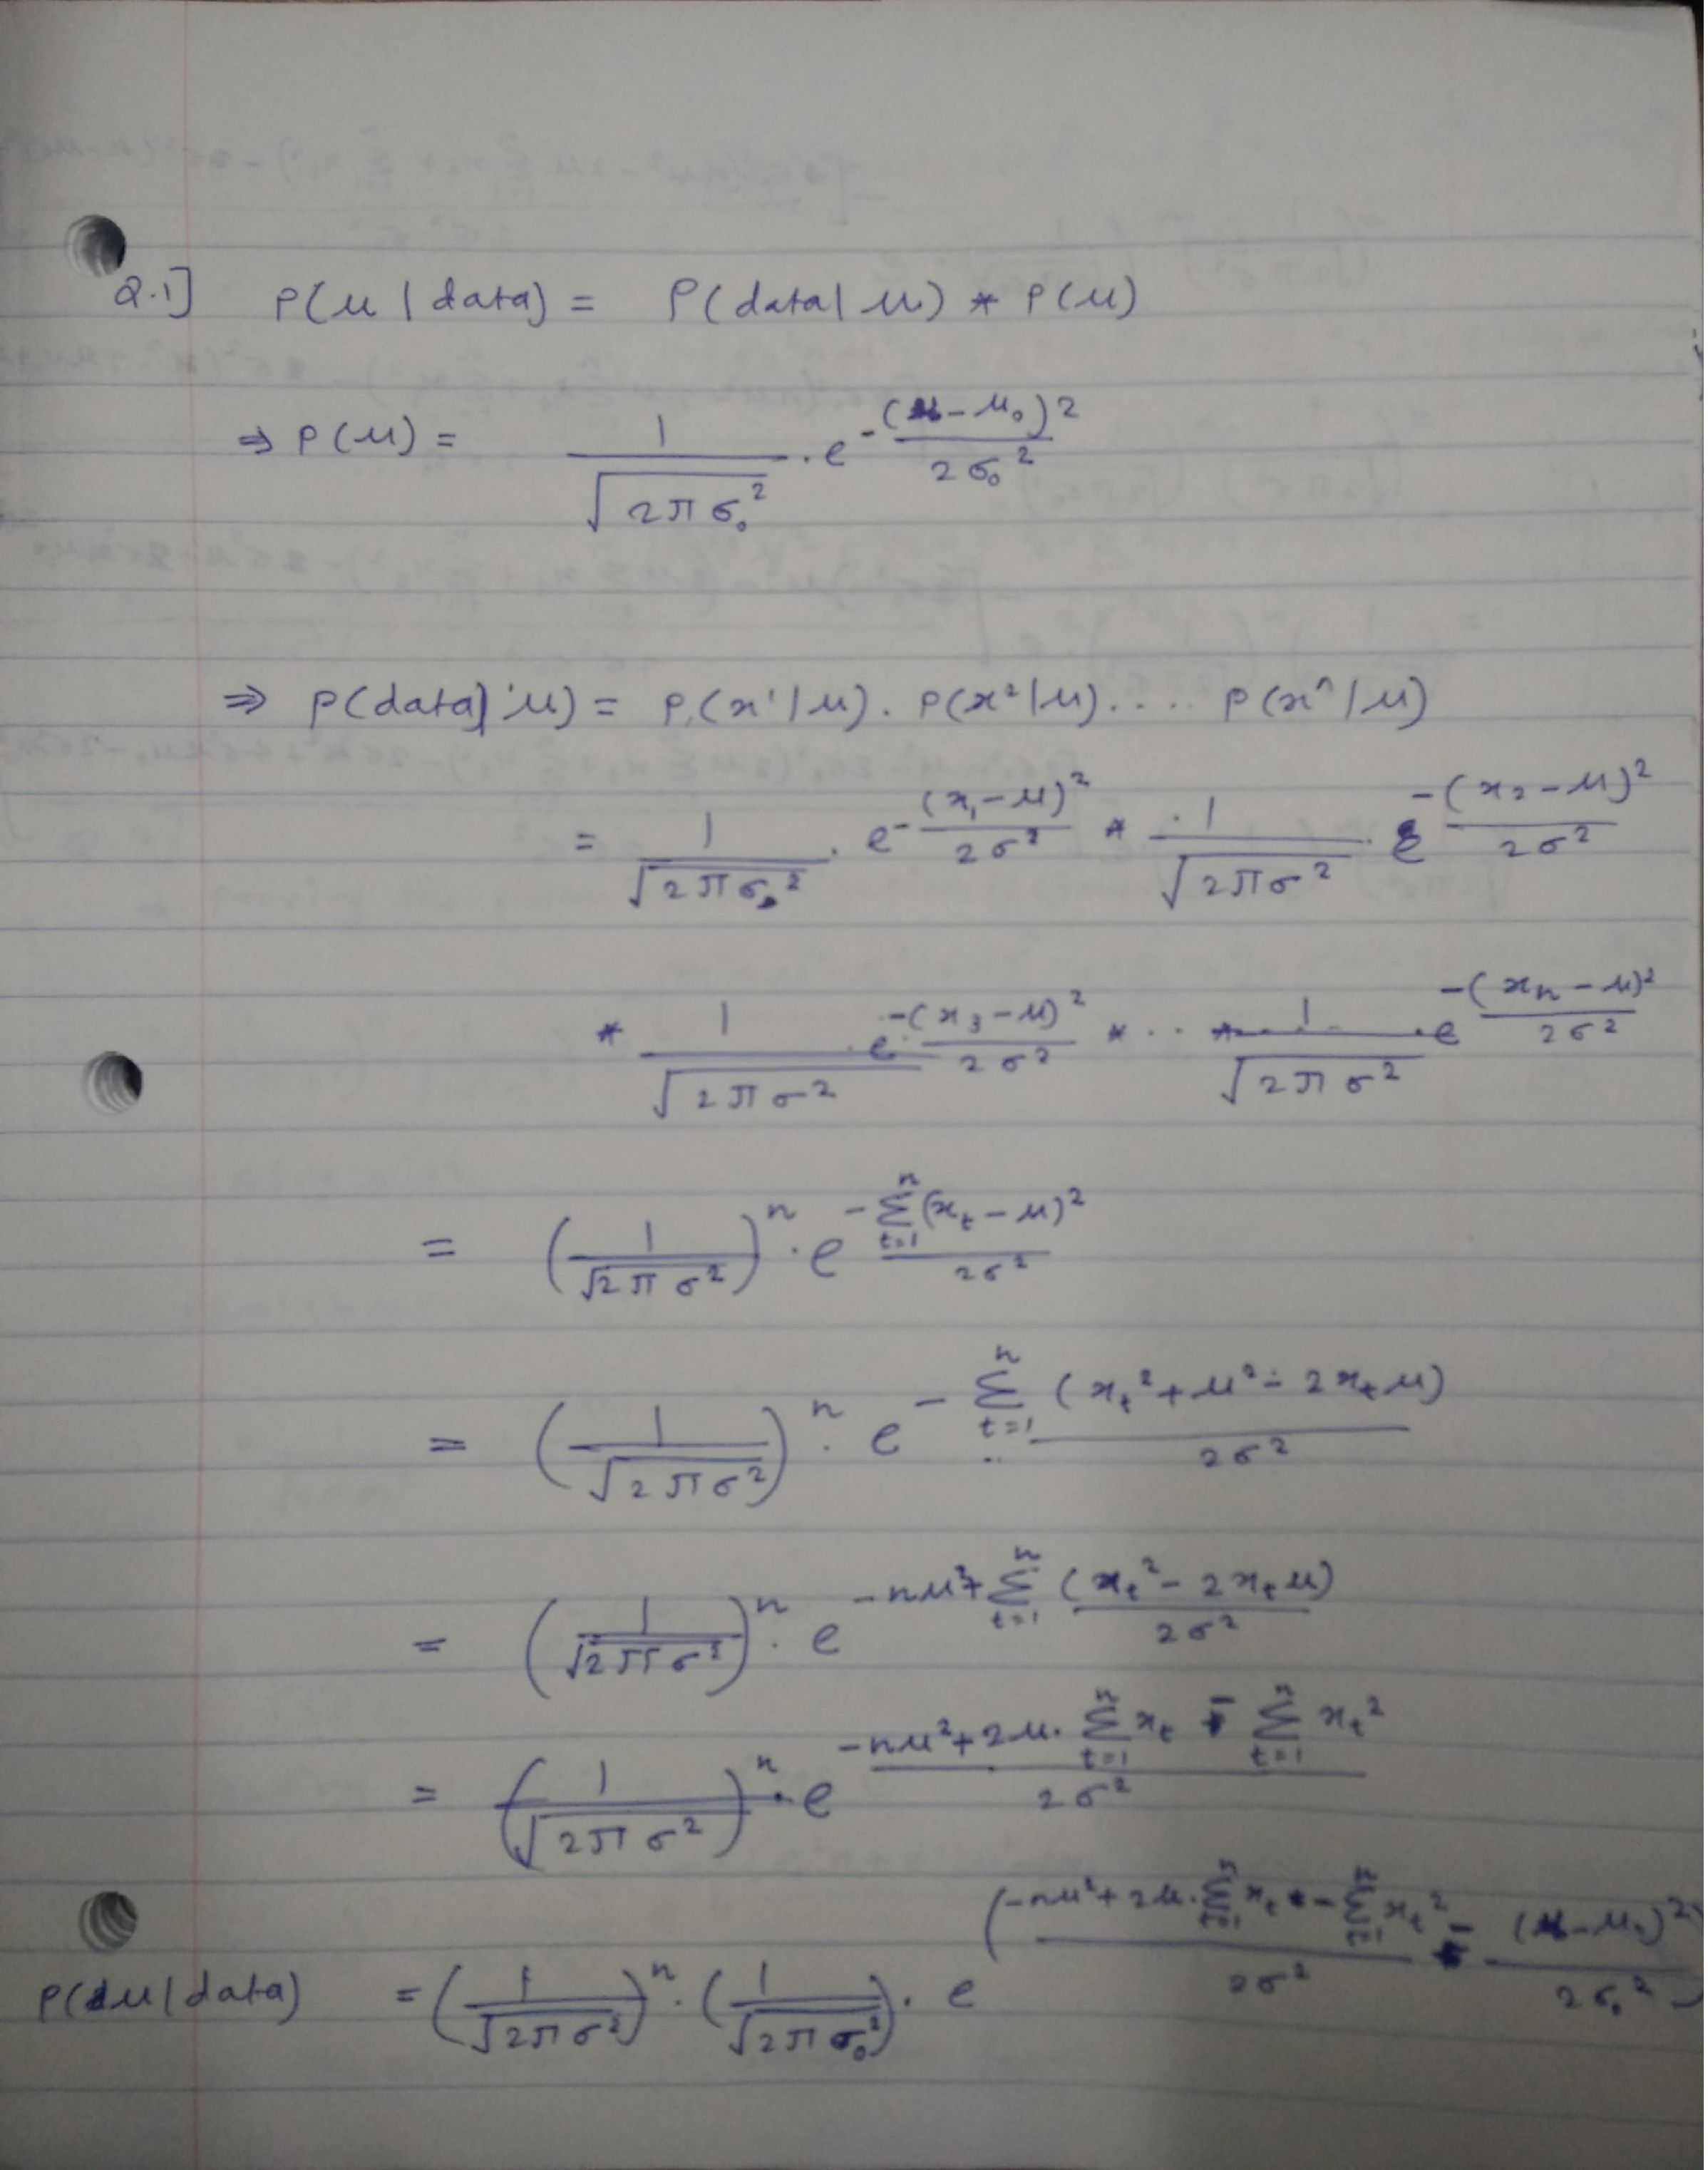 Q.1] P(μ | data) = P(data | μ) * P(μ)
⇒ P(μ) = 1/√(2πσ₀²) . e^(-(μ-μ₀)²/2σ₀²)
⇒ P(data | μ) = P(x¹|μ) . P(x²|μ) . . . . P(xⁿ|μ)
= 1/√(2πσ²) . e^(-(x₁-μ)²/2σ²) * 1/√(2πσ²) e^(-(x₂-μ)²/2σ²)
* 1/√(2πσ²) . e^(-(x₃-μ)²/2σ²) * . . * 1/√(2πσ²) . e^(-(xₙ-μ)²/2σ²)
= (1/√(2πσ²))ⁿ . e^(-∑_{t=1}^{n} (x_t-μ)²/2σ²)
= (1/√(2πσ²))ⁿ . e^(-∑_{t=1}^{n} (x_t²+μ²-2x_tμ)/2σ²)
= (1/√(2πσ²))ⁿ . e^(-nμ²+∑_{t=1}^{n} (x_t²-2x_tμ)/2σ²)
= (1/√(2πσ²))ⁿ . e^((-nμ²+2μ.∑_{t=1}^{n} x_t - ∑_{t=1}^{n} x_t²)/2σ²)
P(μ|data) = (1/√(2πσ²))ⁿ . (1/√(2πσ₀²)) . e^((-nμ²+2μ.∑_{t=1}^{n} x_t - ∑_{t=1}^{n} x_t²)/2σ² - (μ-μ₀)²/2σ₀²)